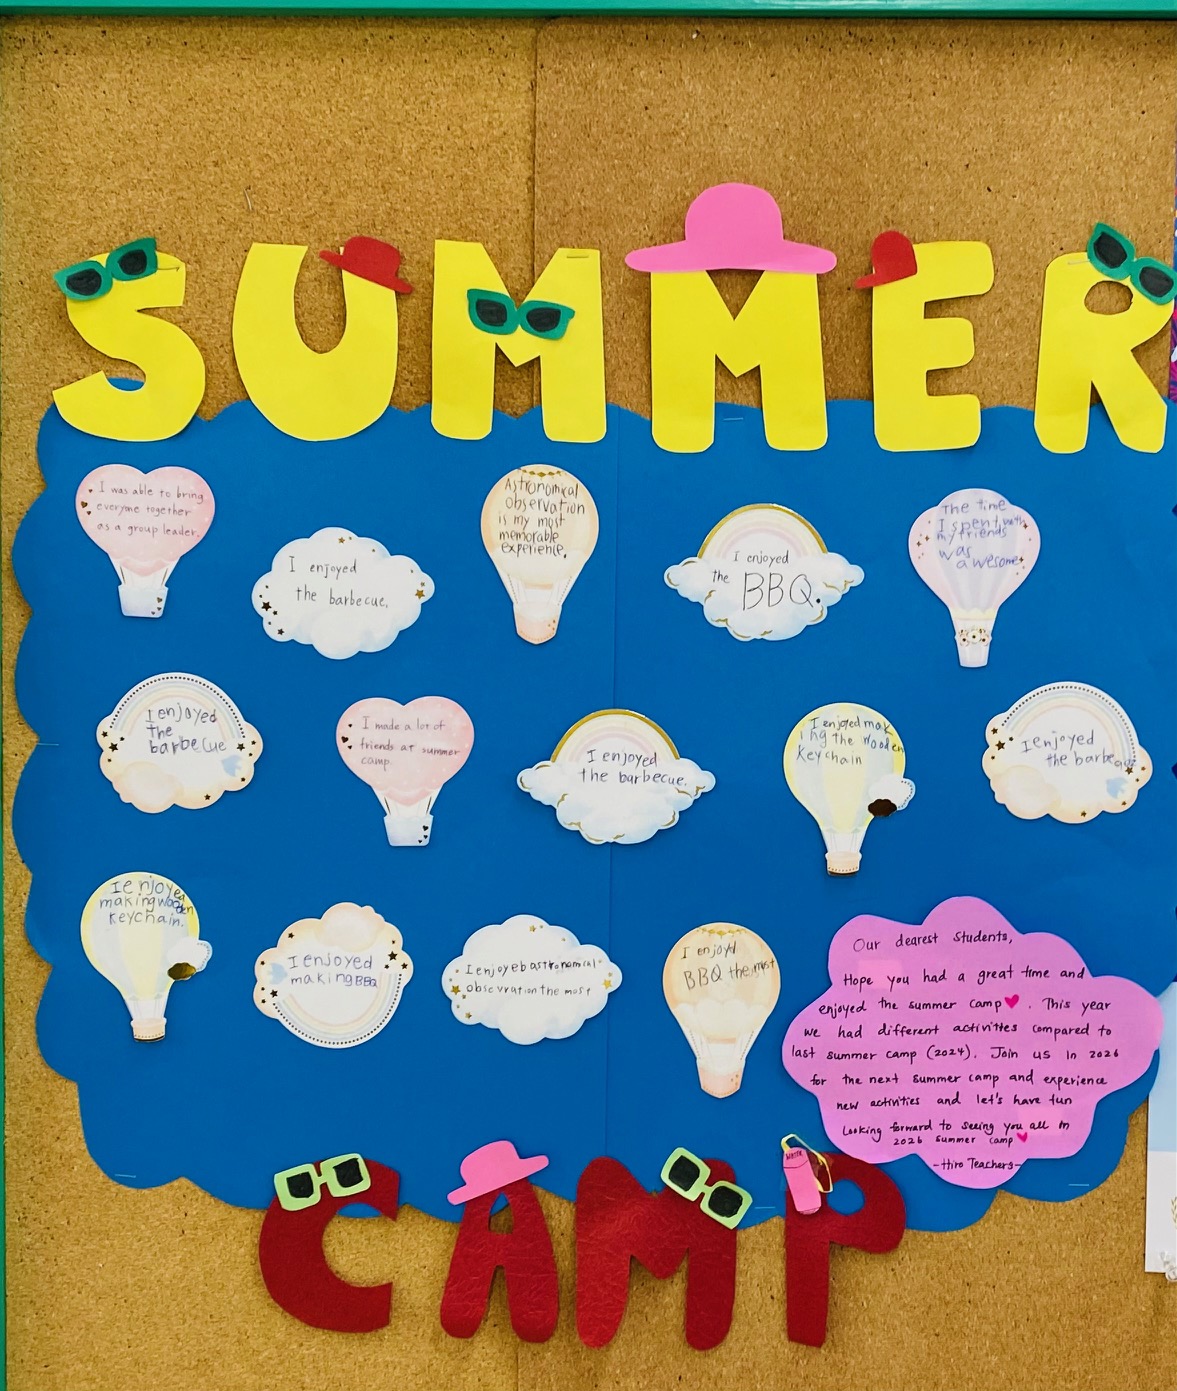 SUMMER
I was able to bring
everyone together
as a group leader.
I enjoyed
the barbecue.
Astronomical
observation
is my most
memorable
experience.
I enjoyed
the BBQ.
The time
I spent with
my friends
was
awesome
I enjoyed
the
barbecue
I made a lot of
friends at summer
camp.
I enjoyed
the barbecue.
I enjoyed mak
ing the wooden
keychain
I enjoyed
the barbecue
I enjoyed
making wooden
keychain.
I enjoyed
making BBQ
I enjoyeb astronomical
obsevration the most
I enjoyd
BBQ the most
Our dearest Students,
Hope you had a great time and
enjoyed the summer camp ♥. This year
we had different activities compared to
last summer camp (2024). Join us in 2026
for the next summer camp and experience
new activities and let's have fun
Looking forward to seeing you all in
2026 summer camp ♥
-Hiro Teachers-
WATER
CAMP